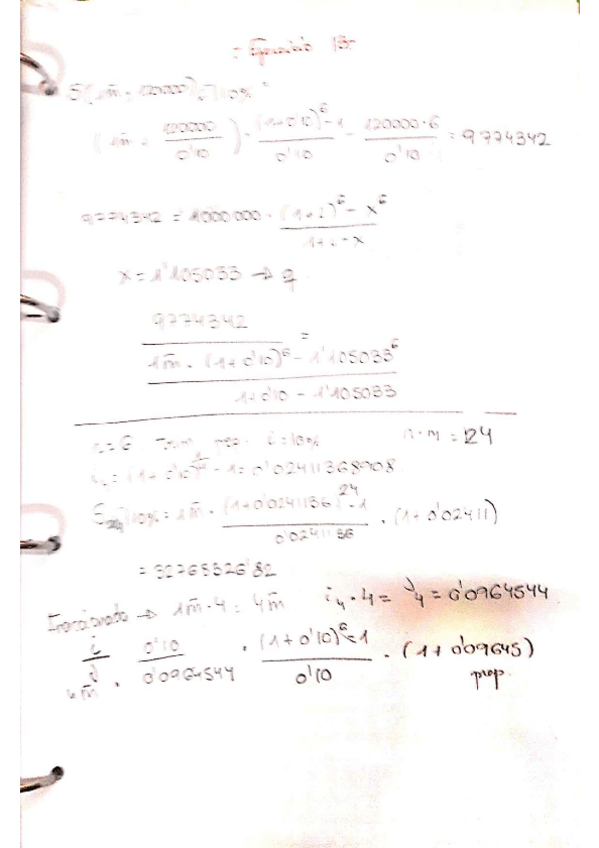 : Ejercicio 13:
S(1m̄ ; 120000)6⌉10%
(1m̄ + 120000/0'10) · (1+0'10)^6-1/0'10 - 120000·6/0'10 = 9774342
9774342 = 1000000 · (1+i)^6 - x^6/1+i-x
x = 1'105033 → q
9774342/1m̄ · (1+0'10)^6 - 1'105033^6/1+0'10 - 1'105033 =
n=6 i=10% n·m = 24
i4 = (1+0'10)^1/4 - 1 = 0'02411368908
S̈24⌉10% = 1m̄ · (1+0'0241136)^24-1/0'0241136 · (1+0'02411)
= 32765326'82
Fraccionado → 1m̄·4 = 4m̄ i4·4 = J4 = 0'0964544
4m̄ · i/J 0'10/0'0964544 · (1+0'10)^6-1/0'10 · (1+0'09645)
prep.